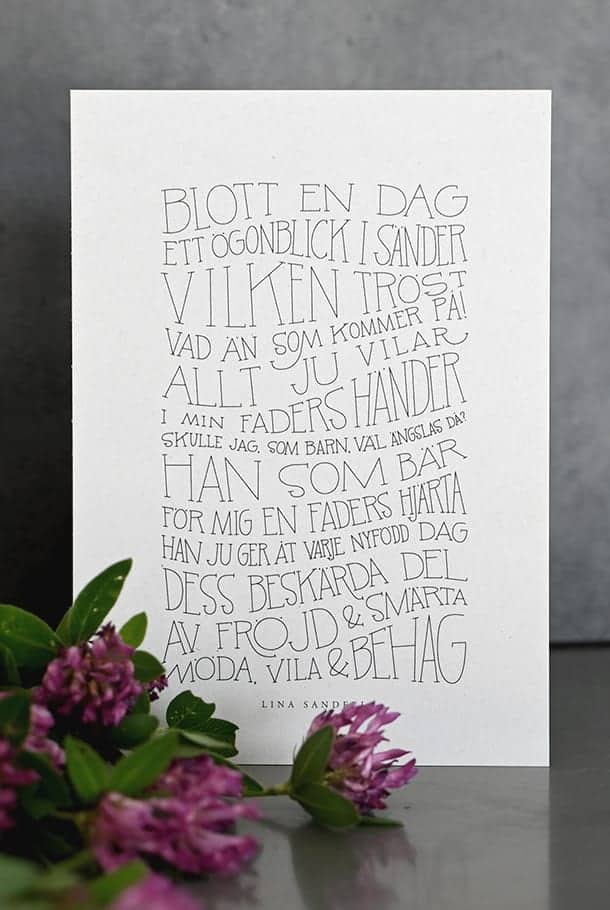 BLOTT EN DAG
ETT ÖGONBLICK I SÄNDER
VILKEN TRÖST
VAD ÄN SOM KOMMER PÅ!
ALLT JU VILAR
I MIN FADERS HÄNDER
SKULLE JAG, SOM BARN, VÄL ÄNGSLAS DÅ?
HAN SOM BÄR
FÖR MIG EN FADERS HJÄRTA
HAN JU GER ÅT VARJE NYFÖDD DAG
DESS BESKÄRDA DEL
AV FRÖJD & SMÄRTA
MÖDA, VILA & BEHAG
LINA